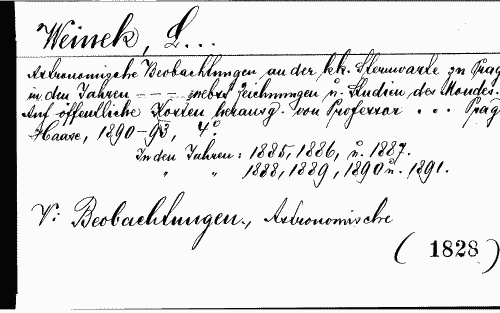 Weinek, L...
Astronomische Beobachtungen an der k.k. Sternwarte zu Prag
in den Jahren - - - - nebst Zeichnungen u. Studien des Mondes.
Auf öffentliche Kosten herausg. von Professor . . . Prag
Haase, 1890-93, 4°.
In den Jahren: 1885, 1886, u. 1887.
" " 1888, 1889, 1890 u. 1891.
V: Beobachtungen., Astronomische
( 1828 )